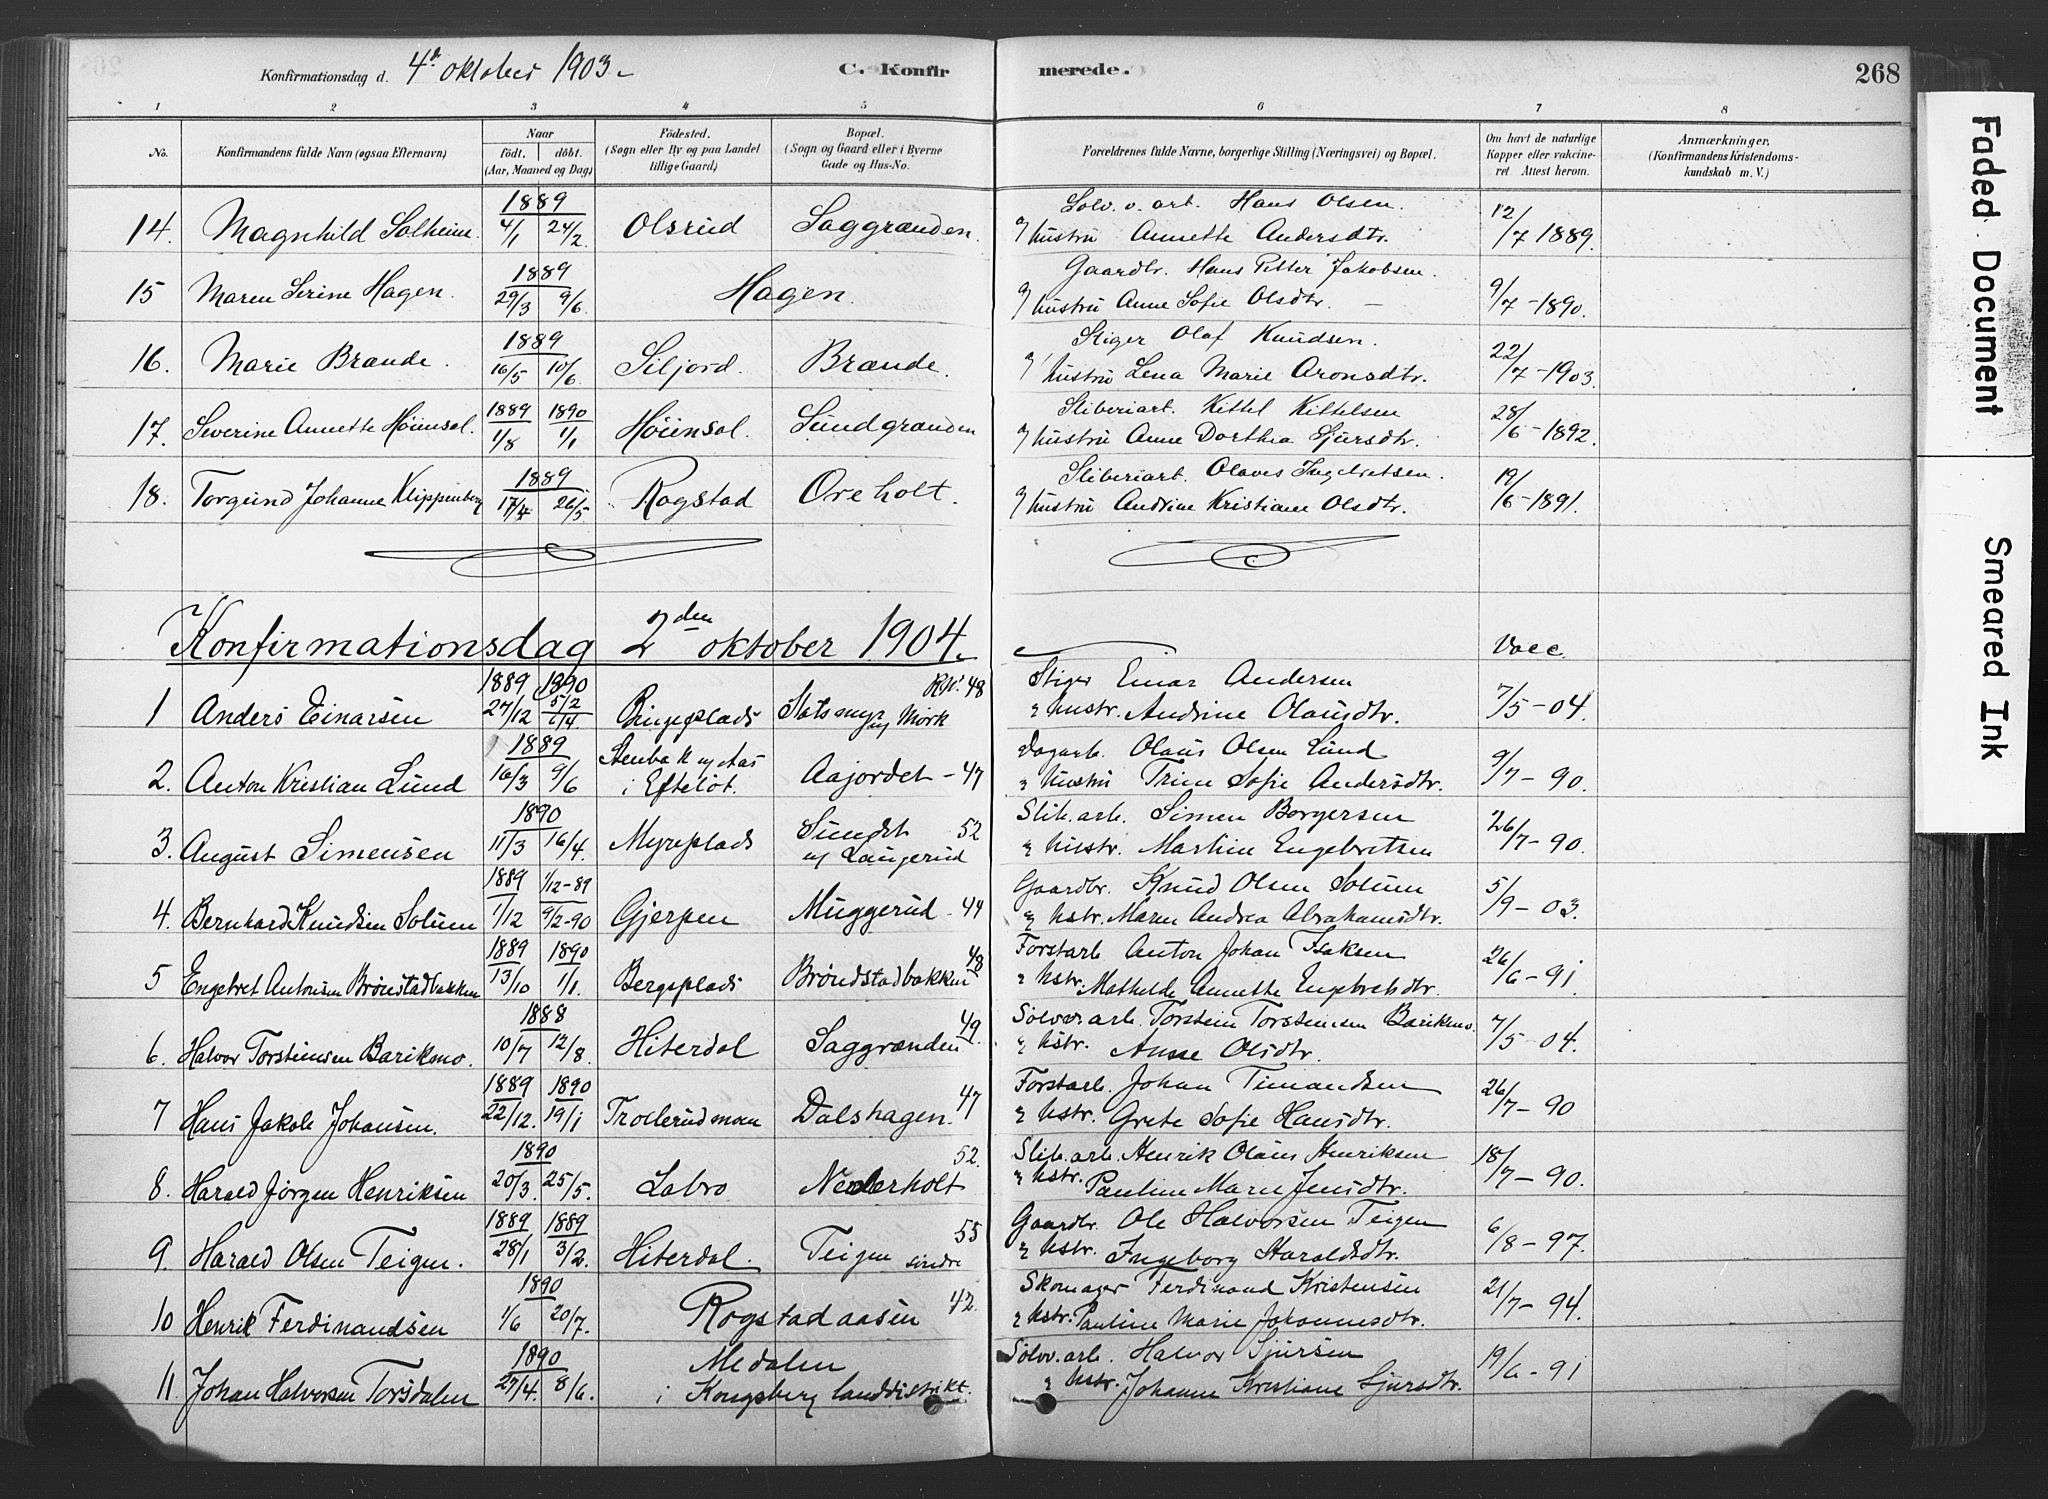 Konfirmationsdag d. 4de oktober 1903 C. Konfirmerede. 268
1 2 3 4 5 6 7 8
No. Konfirmandens fulde Navn (ogsaa Efternavn) Naar født, døbt. (Aar, Maaned og Dag) Fødested. (Sogn eller By og paa Landet tillige Gaard) Bopæl. (Sogn og Gaard eller i Byerne Gade og Hus-No. Forældrenes fulde Navne, borgerlige Stilling (Næringsvei) og Bopæl. Om havt de naturlige Kopper eller vakcineret. Attest herom. Anmærkninger. (Konfirmandens Kristendomskundskab m. V.)
14. Magnhild Solheim. 1889 4/1 24/2. Olsrud Saggrænden. Sølv. v. arb. Hans Olsen. 12/7 1889.
og hustru Annette Andersdtr.
15 Maren Serine Hagen. 1889 29/3 9/6. Hagen. Gaardbr. Hans Petter Jakobsen. 9/7-1890.
og hustru Anne Sofie Olsdtr. -
16. Marie Brænde. 1889 16/5 10/6 Siljord. Brænde. Stiger Olaf Knudsen. 22/7-1903.
og hustru Lena Marie Aronsdtr.
17. Severine Annette Høimsal. 1889 1/8 1890 1/1 Høimsal. Sundgrænden Sliberiarb. Kittel Kittelsen 28/6-1892.
og hustru Anne Dorthea Sjursdtr.
18. Torgund Johanne Klippenberg 1889 17/4 26/5 Rogstad Øreholt. Sliberiarb. Olaves Ingebretsen. 19/6-1891.
og hustru Andrine Kristiane Olsdtr.
Konfirmationsdag 2den oktober 1904. Vacc.
1 Anders Einarsen 1889 27/12 1890 5/2 1/4 Bingeplads Statsmyr ug Mørk 48 Stiger Einar Andersen 7/5-04.
& hustr. Andrine Olausdtr.
2. Anton Kristian Lund 1889 16/3 9/6 Stenbakk
i Efteløt. Aajordet - 47 Dagarb. Olaus Olsen Lund 9/7-90.
& hustru Trine Sofie Andersdtr.
3. August Simensen 1890 11/3 16/4. Myreplads Sundet 52
ug Langerud Slib. arb. Simen Borgersen 26/7-90.
& hustr. Martine Engebretsen
4. Bernhard Knudsen Solum 1889 1/12 1/12-89 9/2-90 Gjerpen Muggerud - 44 Gaardbr. Knud Olsen Solum 5/9-03.
& hstr. Maren Andrea Abrahamsdtr.
5 Engebret Antonsen Brønstadbakken 1889 13/10 1890 1/1. Bergsplads Brøndstadbakken 48 Forstarb Anton Johan Isaksen 26/6-91
& hstr. Mathilde Annette Engebretsdtr.
6. Halvor Torstensen Bariksmo. 1888 10/7 12/8. Hiterdal Saggrænden 49. Sølvv. arb. Torstein Torstensen Bariksmo. 7/5-04.
& hstr. Anne Olsdtr.
7 Hans Jakob Johansen. 1889 22/12. 1890 19/1 Trollerudmoen Dalshagen. 47 Forstarb. Johan Timandsen 26/7-90
& hstr. Grete Sofie Hansdtr.
8. Harald Jørgen Henriksen 1890 20/3. 25/5. Labro Nederholt 52. Slib. arb. Henrik Olaus Henriksen 18/7-90.
& hstr. Pauline Marie Jensdtr.
9. Harald Olsen Teigen. 1889 28/1 1889 3/2. Hiterdal. Teigen søndre 55 Gaardbr. Ole Halvorsen Teigen 6/8-97.
& hstr. Ingeborg Haraldsdtr.
10 Henrik Ferdinandsen 1890 1/6 20/7. Rogstadaasen 42. Skomager Ferdinand Kristensen 21/7-94.
& hstr. Pauline Marie Johannesdtr.
11. Johan Halvorsen Torsdalen 1890 27/4. 8/6. Medalen
i Kongsberg landdistrikt. Sølvv. arb. Halvor Sjursen 19/6-91
& hstr. Johanne Kristiane Sjursdtr.
Faded Document
Smeared Ink